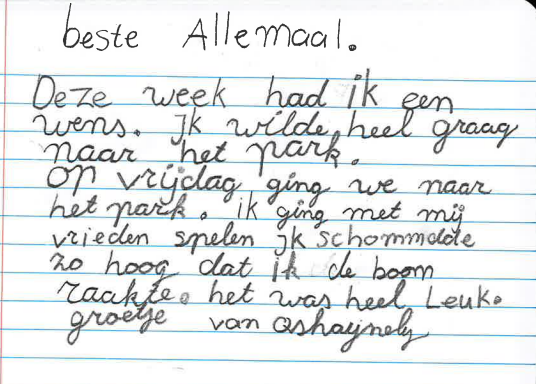 beste Allemaal.
Deze week had ik een
wens. ik wilde heel graag
naar het park.
op vrijdag ging we naar
het park. ik ging met mij
vrieden spelen ik schommdde
zo hoog dat ik de boom
raakte. het was heel Leuk.
groetje van